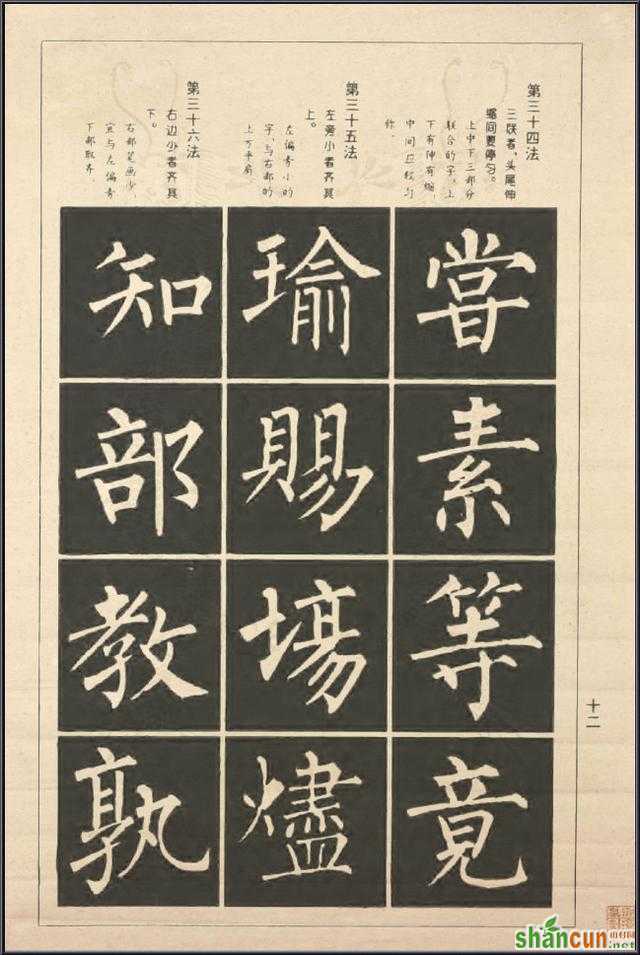 第三十四法
三联者，头尾伸
缩间要停匀。
上中下三部分
联合的字，上
下有伸有缩，
中间应较匀
称。
嘗
素
等
竟
第三十五法
左旁小者齐其
上。
左偏旁小的
字，与右部的
上方平肩。
瑜
賜
塲
燼
第三十六法
右边少者齐其
下。
右部笔画少，
宜与左偏旁
下部取齐。
知
部
教
孰
十二
shancun
山村网
.net